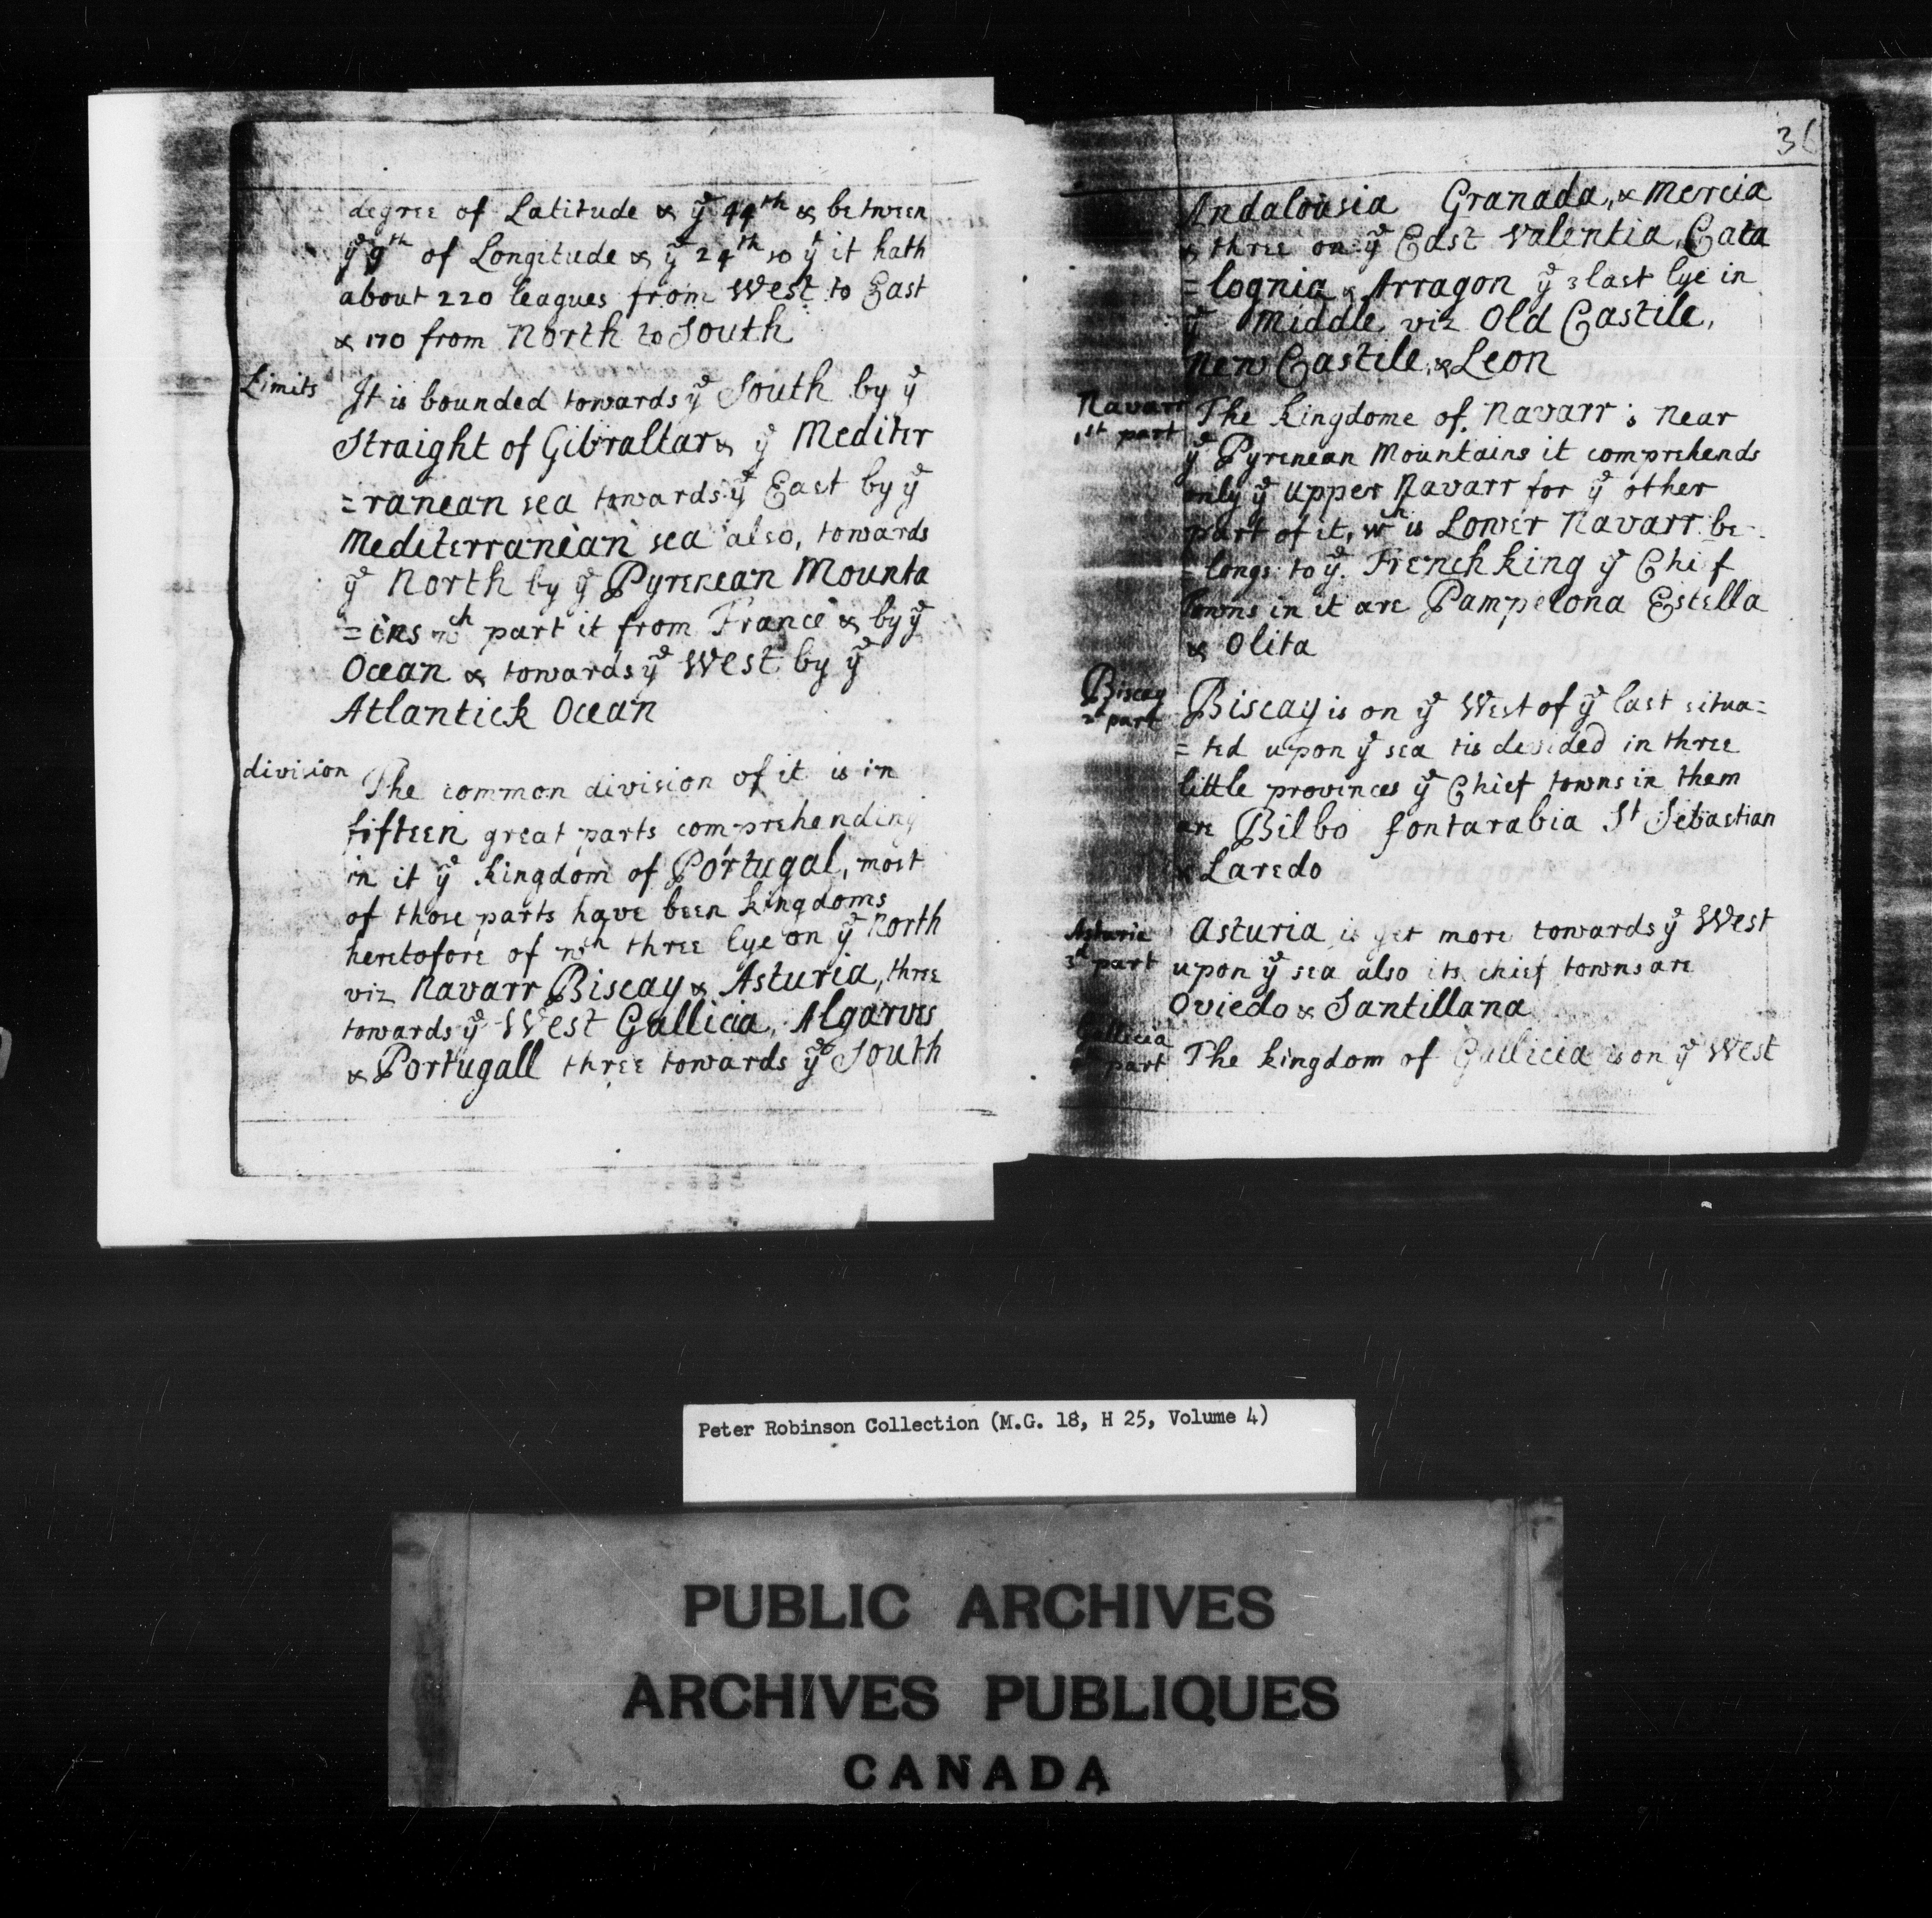 degree of Latitude & yͤ 44th & between
yͤ 9th of Longitude & yͤ 24th so yͭ it hath
about 220 leagues from West to East
& 170 from North to South
Limits It is bounded towards yͤ South by yͤ
Straight of Gibraltar & yͤ Mediter
=ranean sea towards yͤ East by yͤ
Mediterranean sea also, towards
yͤ North by yͤ Pyrenean Mounta
=ins wch part it from France & by yͤ
Ocean & towards yͤ West by yͤ
Atlantick Ocean
division The common division of it is in
fifteen great parts comprehending
in it yͤ kingdom of Portugal, most
of those parts have been kingdoms
heretofore of wch three lye on yͤ North
viz Navarr Biscay & Asturia, three
towards yͤ West Gallicia, Algarves
& Portugall three towards yͤ South
36
Andalousia Granada, & Mercia
& three on yͤ East Valentia, Cata
=lognia & Arragon yͤ 3 last lye in
yͤ Middle viz Old Castile,
New Castile, & Leon
Navarr The kingdome of Navarr is near
1st part yͤ Pyrenean Mountains it comprehends
only yͤ Upper Navarr for yͤ other
part of it, wch is Lower Navarr be-
=longs to yͤ French king yͤ Chief
towns in it are Pampelona Estella
& Olita
Biscay Biscay is on yͤ West of yͤ last situa=
2d part =ted upon yͤ sea tis devided in three
little provinces yͤ Chief towns in them
are Bilbo fontarabia St Sebastian
& Laredo
Asturia Asturia is yet more towards yͤ West
3d part upon yͤ sea also its chief towns are
Oviedo & Santillana
Gallicia The kingdom of Gallicia is on yͤ West
part
Peter Robinson Collection (M.G. 18, H 25, Volume 4)
PUBLIC ARCHIVES
ARCHIVES PUBLIQUES
CANADA